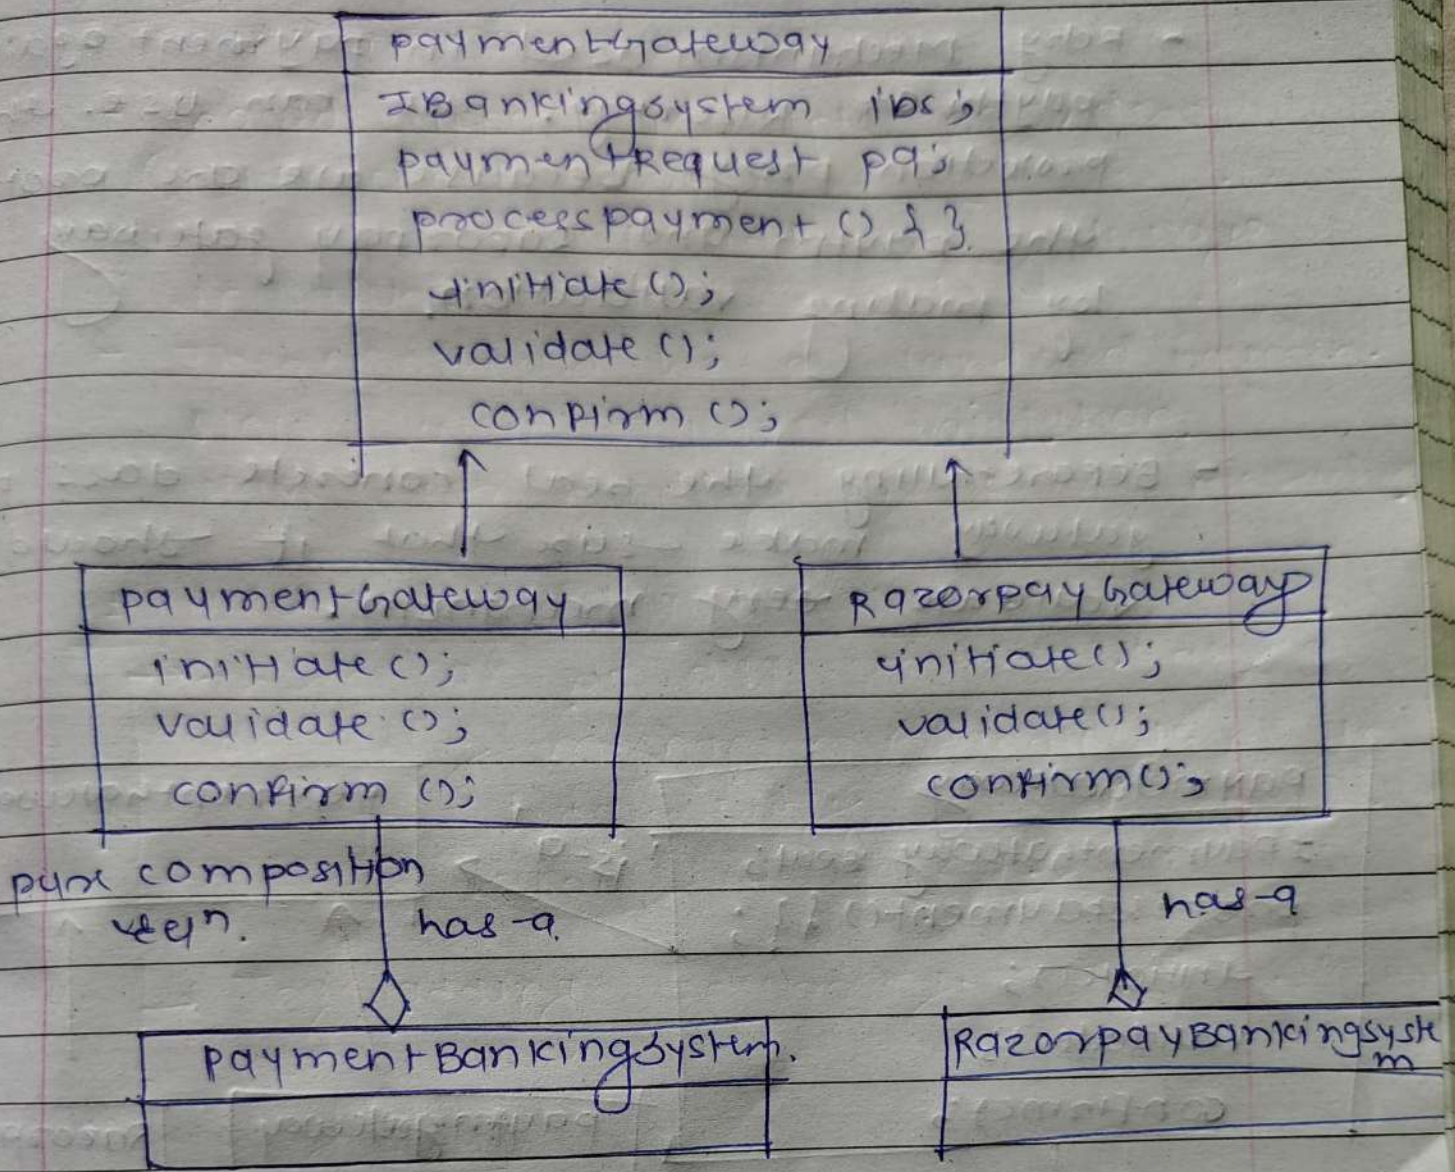 paymentGateway
IBankingsystem ibs;
paymentRequest pq;
processpayment () { }
initiate ();
validate ();
confirm ();
paymentGateway
initiate ();
validate ();
confirm ();
RazorpayGateway
initiate ();
validate ();
confirm ();
pure composition
relⁿ.
has-a
has-a
paymentBankingsystem.
RazorpayBankingsyste
m